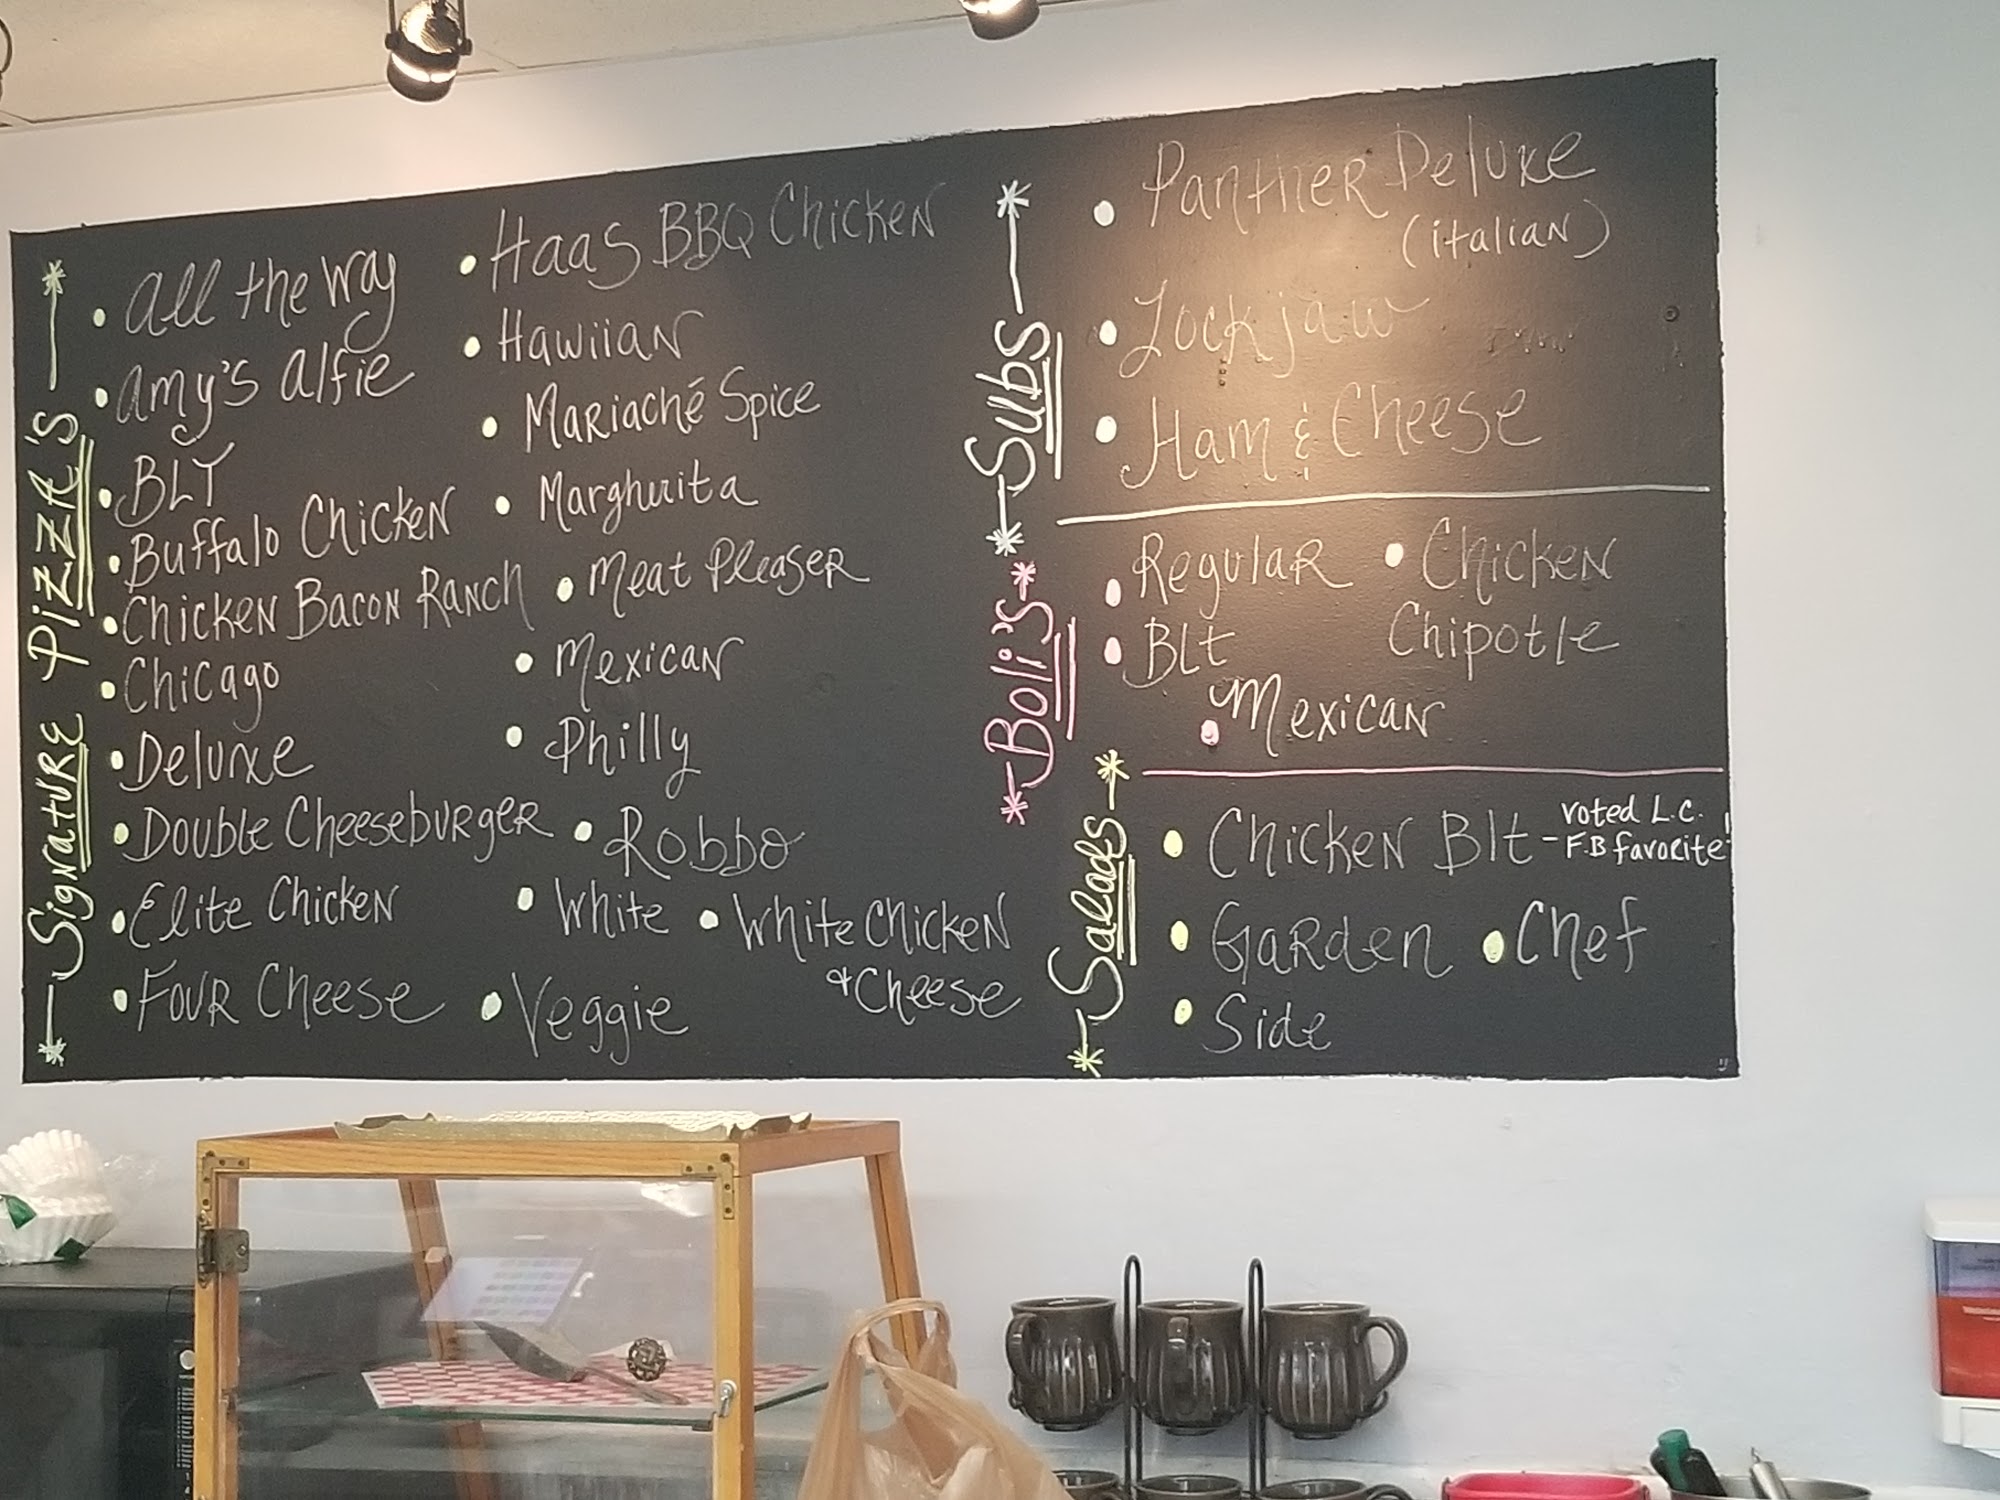 Signature Pizza's
All the Way
Amy's Alfie
BLT
Buffalo Chicken
Chicken Bacon Ranch
Chicago
Deluxe
Double Cheeseburger
Elite Chicken
Four Cheese
Haas BBQ Chicken
Hawiian
Mariaché Spice
Margherita
Meat Pleaser
Mexican
Philly
Robbo
White
White Chicken
& Cheese
Veggie
Subs
Panther Deluxe
(italian)
Lockjaw
Ham & Cheese
Boli's
Regular
Blt
Chicken
Chipotle
Mexican
Salads
Chicken Blt - voted L.C.
F.B favorite!
Garden
Chef
Side